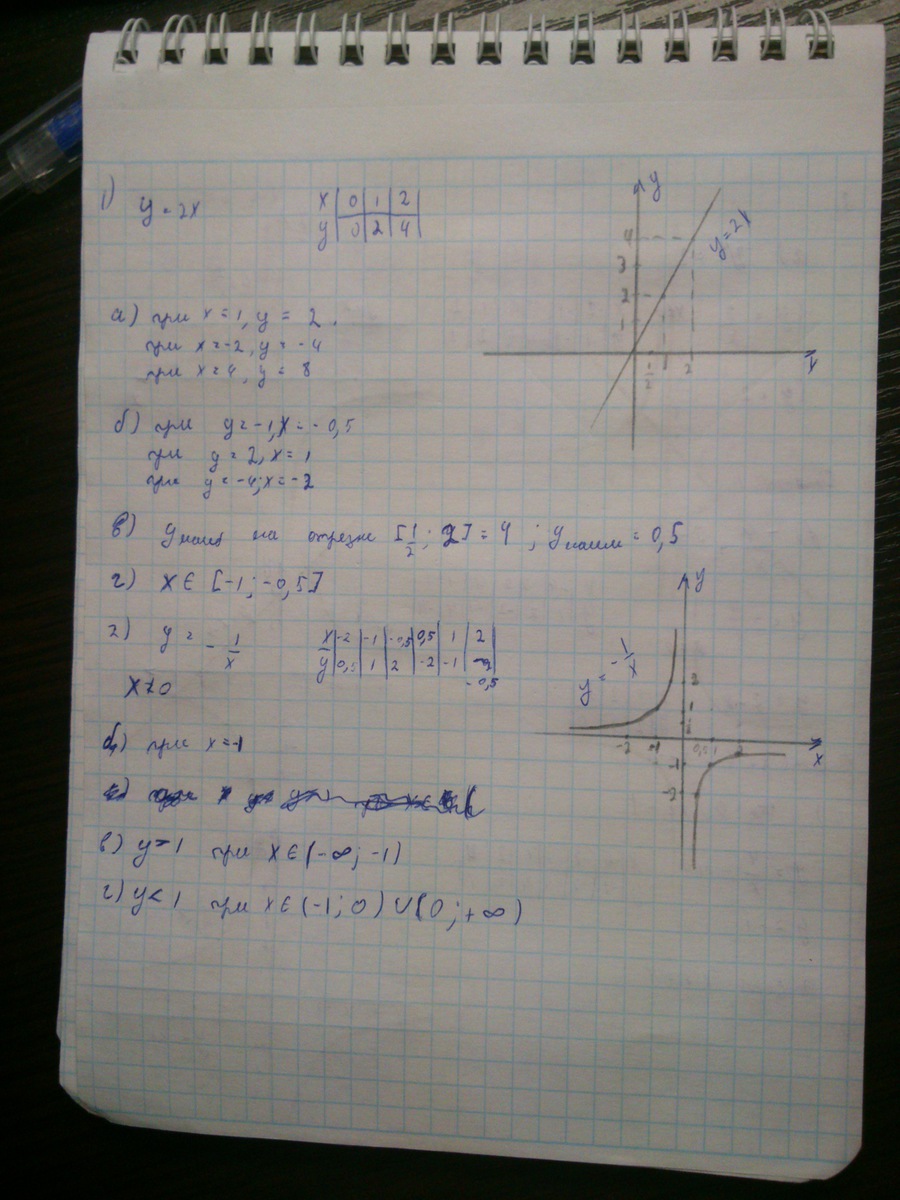 1) y = 2x
x | 0 | 1 | 2
y | 0 | 2 | 4
y
4
3
2
1
1/2 1 2
x
y = 2x
а) при x = 1, y = 2.
при x = -2, y = -4
при x = 4, y = 8
б) при y = -1, x = -0,5
при y = 2, x = 1
при y = -4; x = -2
в) yнаиб на отрезке [1/2; 2] = 4 ; yнаим = 0,5
г) x ∈ [-1; -0,5]
2) y = -1/x
x | -2 | -1 | -0,5 | 0,5 | 1 | 2
y | 0,5 | 1 | 2 | -2 | -1 | -0,5
x ≠ 0
y
y = -1/x
2
1
-2 -1 0,5 1 2
x
-1
-2
б) при x = -1
в) y > 1 при x ∈ (-∞; -1)
г) y < 1 при x ∈ (-1; 0) ∪ (0; +∞)